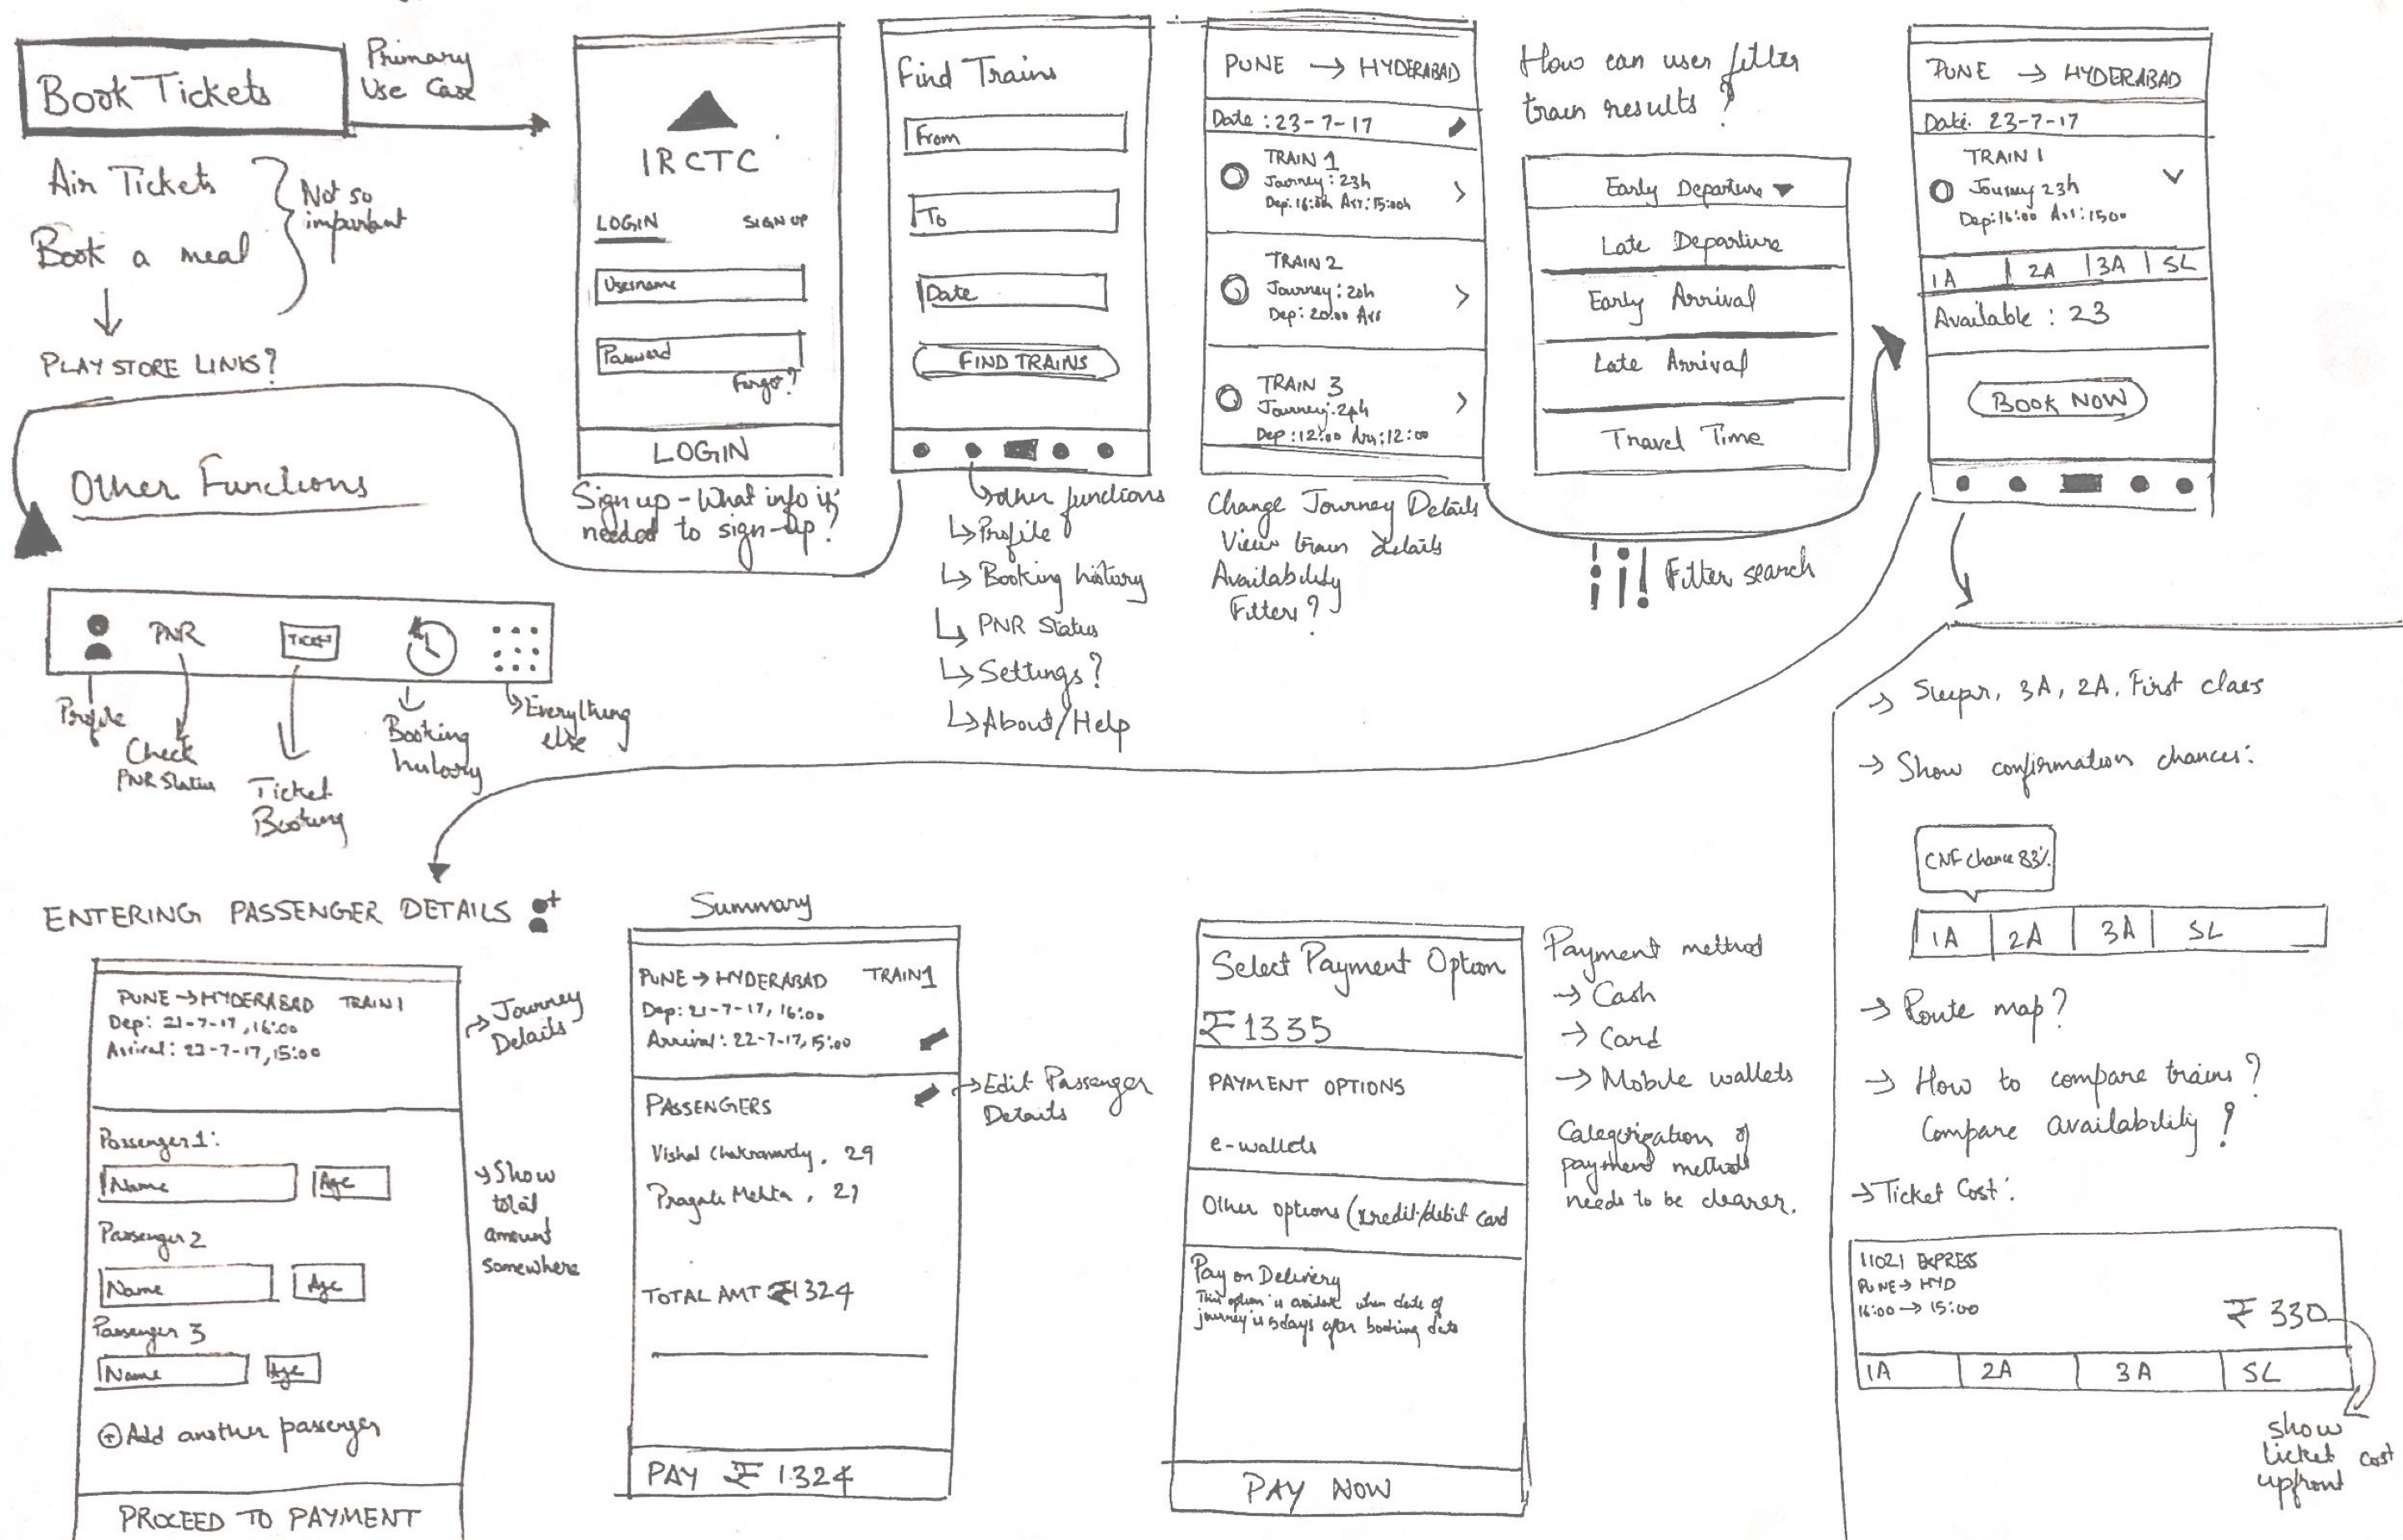 Book Tickets
Primary
Use Case
Air Tickets
Book a meal
Not so
important
PLAYSTORE LINKS?
IRCTC
LOGIN
SIGN UP
Username
Password
Forgo?
LOGIN
Sign up - What info is
needed to sign-up?
Find Trains
From
To
Date
FIND TRAINS
other functions
Profile
Booking history
PNR Status
Settings?
About/Help
PUNE → HYDERABAD
Date : 23-7-17
TRAIN 1
Journey : 23h
Dep: 16:00h Arr: 15:00h
TRAIN 2
Journey : 20h
Dep: 20:00 Arr
TRAIN 3
Journey: 24h
Dep : 12:00 Arr: 12:00
Change Journey Details
View train details
Availability
Filters?
How can user filter
train results?
Early Departure
Late Departure
Early Arrival
Late Arrival
Travel Time
Filter search
PUNE → HYDERABAD
Date: 23-7-17
TRAIN 1
Journey 23h
Dep: 16:00 Arr: 1500
1A 2A 3A SL
Available : 23
BOOK NOW
Other Functions
PNR
TICKET
Profile
Check
PNR Status
Ticket
Booking
Booking
history
Everything
else
→ Sleepr, 3A, 2A, First class
→ Show confirmation chances:
CNF Chance 83%
1A 2A 3A SL
→ Route map?
→ How to compare trains?
Compare availability?
→ Ticket Cost:
11021 EXPRESS
PUNE → HYD
16:00 → 15:00
₹ 330
1A 2A 3A SL
show
ticket cost
upfront
ENTERING PASSENGER DETAILS
PUNE → HYDERABAD TRAIN 1
Dep: 21-7-17, 16:00
Arrival: 22-7-17, 15:00
→ Journey
Details
Passenger 1:
Name Age
Passenger 2
Name Age
Passenger 3
Name Age
+ Add another passenger
PROCEED TO PAYMENT
→ Show
total
amount
somewhere
Summary
PUNE → HYDERABAD TRAIN 1
Dep: 21-7-17, 16:00
Arrival: 22-7-17, 15:00
PASSENGERS
→ Edit Passenger
Details
Vishal Chakravarty, 29
Pragati Mehta, 27
TOTAL AMT ₹1324
PAY ₹ 1324
Select Payment Option
₹ 1335
PAYMENT OPTIONS
e-wallets
Other options (credit/debit card
Pay on Delivery
This option is available when date of
journey is 5 days after booking date
PAY NOW
Payment method
→ Cash
→ Card
→ Mobile wallets
Categorization of
payment method
needs to be clearer.